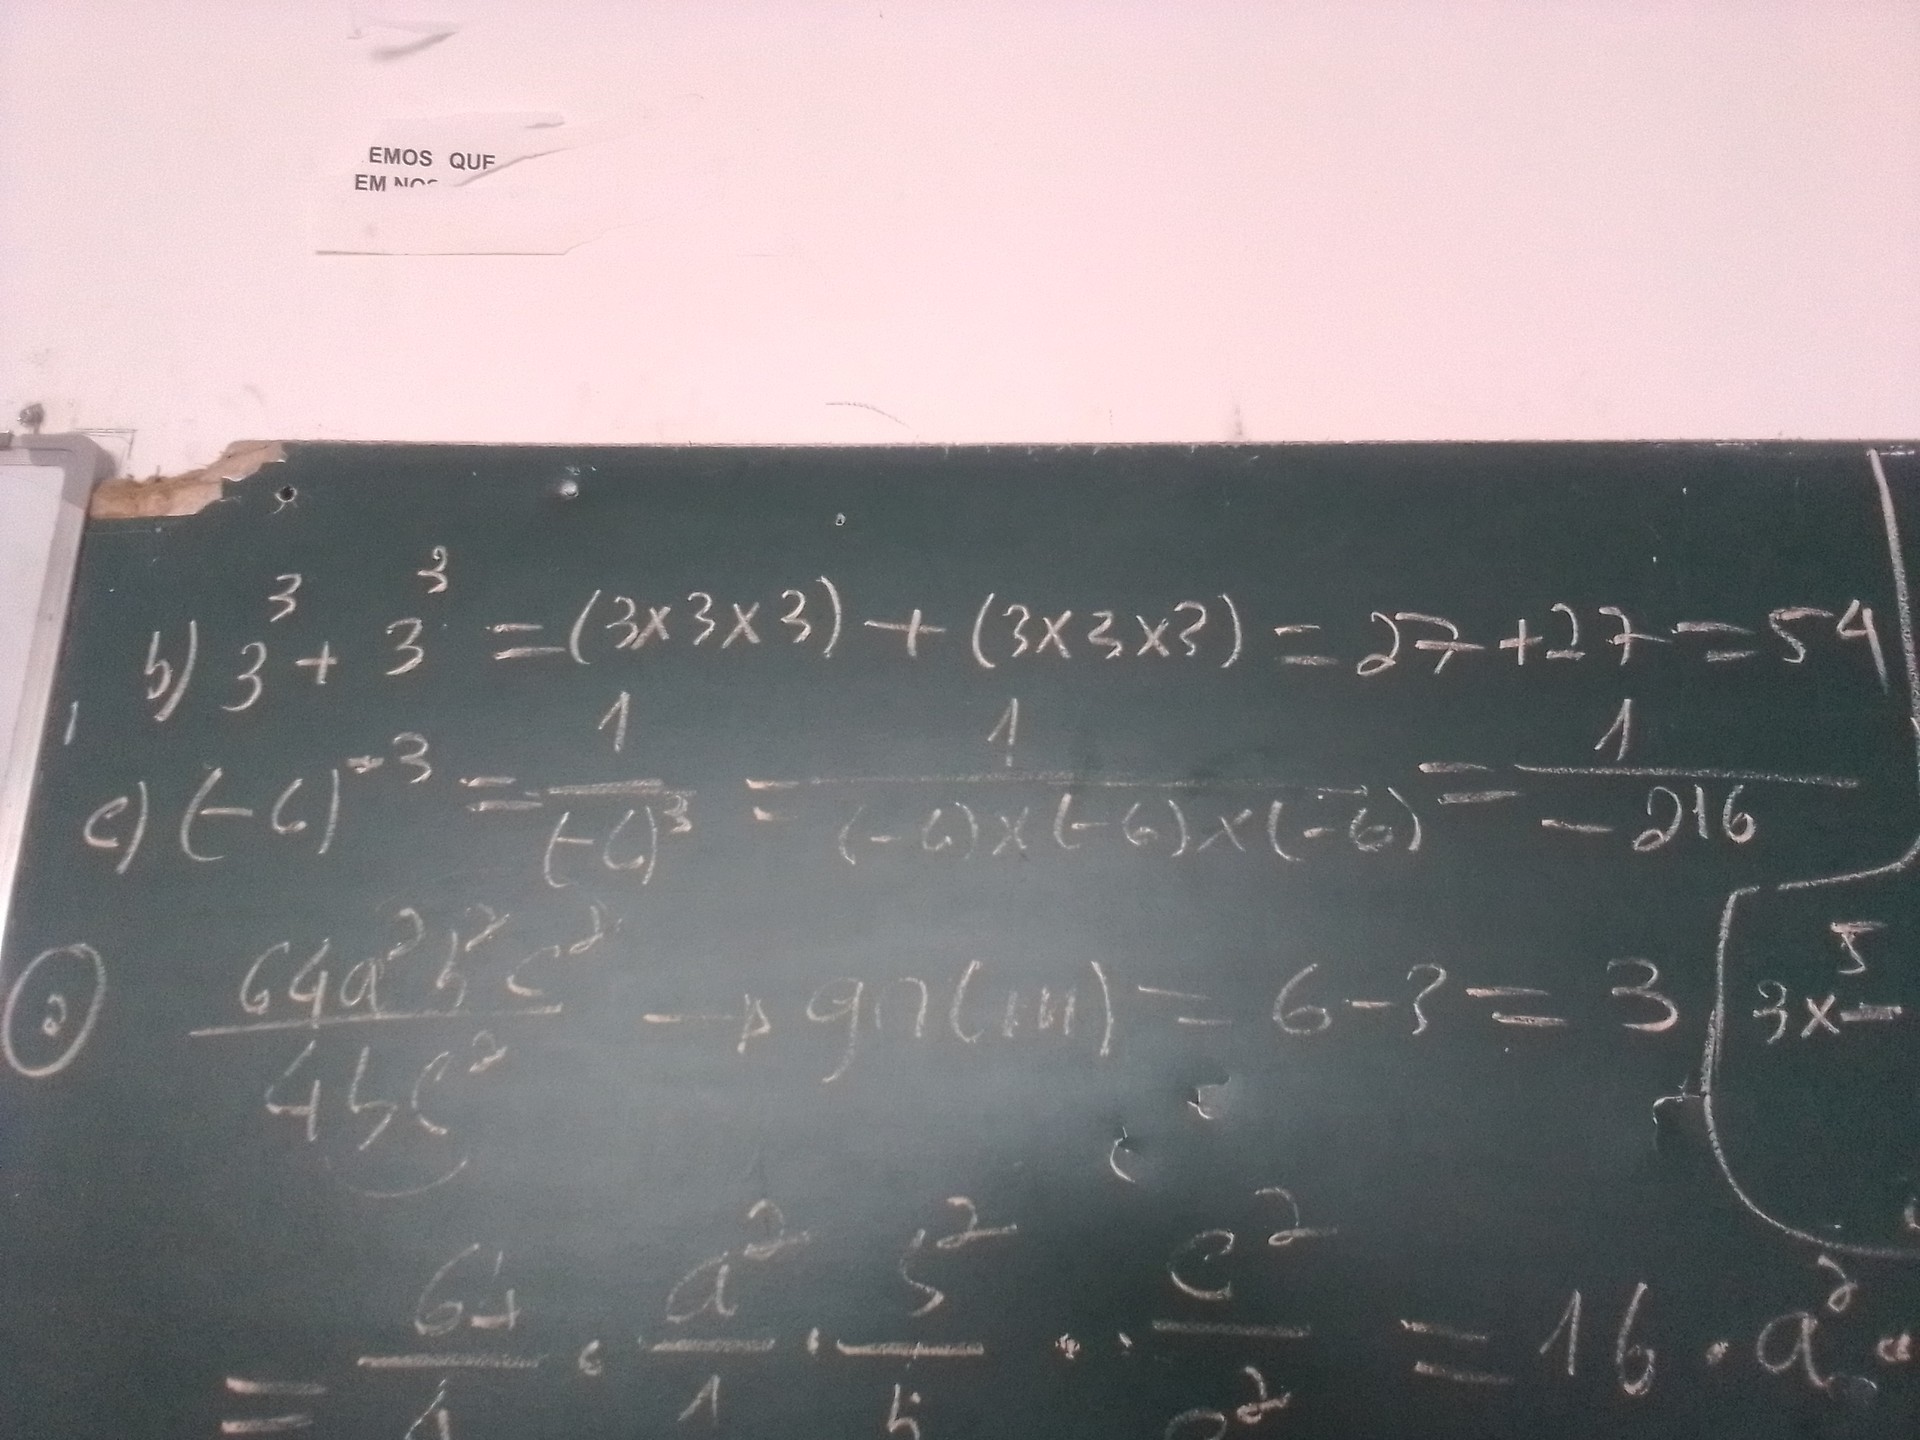 EMOS QUE
EM NOS
b) 3³ + 3³ = (3x3x3) + (3x3x3) = 27 + 27 = 54
c) (-6)⁻³ = 1/(-6)³ = 1/((-6)x(-6)x(-6)) = 1/-216
2 64a²b²c²/4bc² → gr(m) = 6-3 = 3
5
3x-
= 64/4 · a²/1 · b²/b · c²/c² = 16 · a² ·